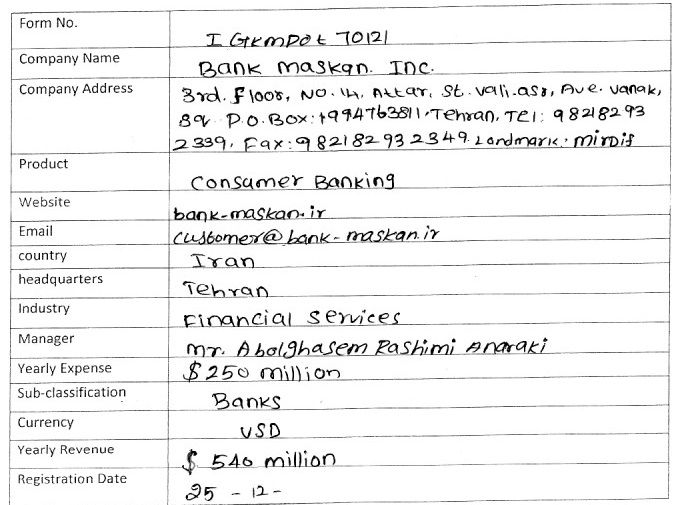 Form No.
I GTKmpot 70121
Company Name
Bank maskan. Inc.
Company Address
3rd. floor, NO. 14, Attar, St. vali-asr, Ave. vanak,
Sq. P.O.Box: 1994763811, Tehran, Tel: 9 8218293
2339, Fax: 982182932349. Landmark: mirdif
Product
Consumer Banking
Website
bank-maskan.ir
Email
customer@bank-maskan.ir
country
Iran
headquarters
Tehran
Industry
Financial Services
Manager
mr. Abolghasem Rashimi Anaraki
Yearly Expense
$ 250 million
Sub-classification
Banks
Currency
USD
Yearly Revenue
$ 540 million
Registration Date
25 - 12 -